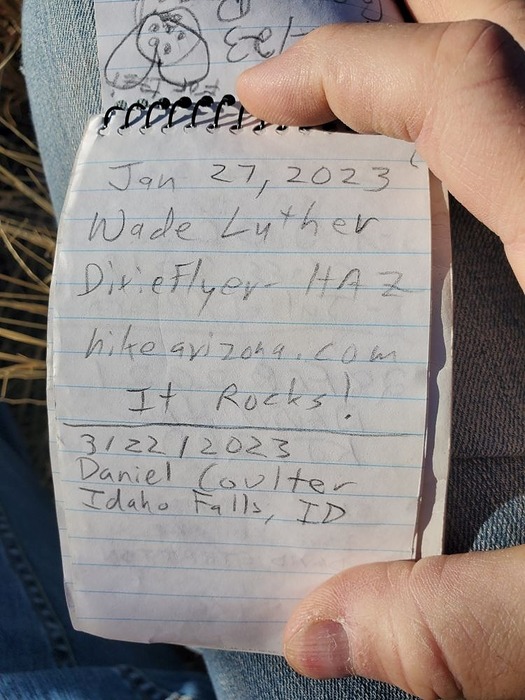 Jan 27, 2023
Wade Luther
DixieFlyer - HAZ
hikearizona.com
It Rocks!
3/22/2023
Daniel Coulter
Idaho Falls, ID